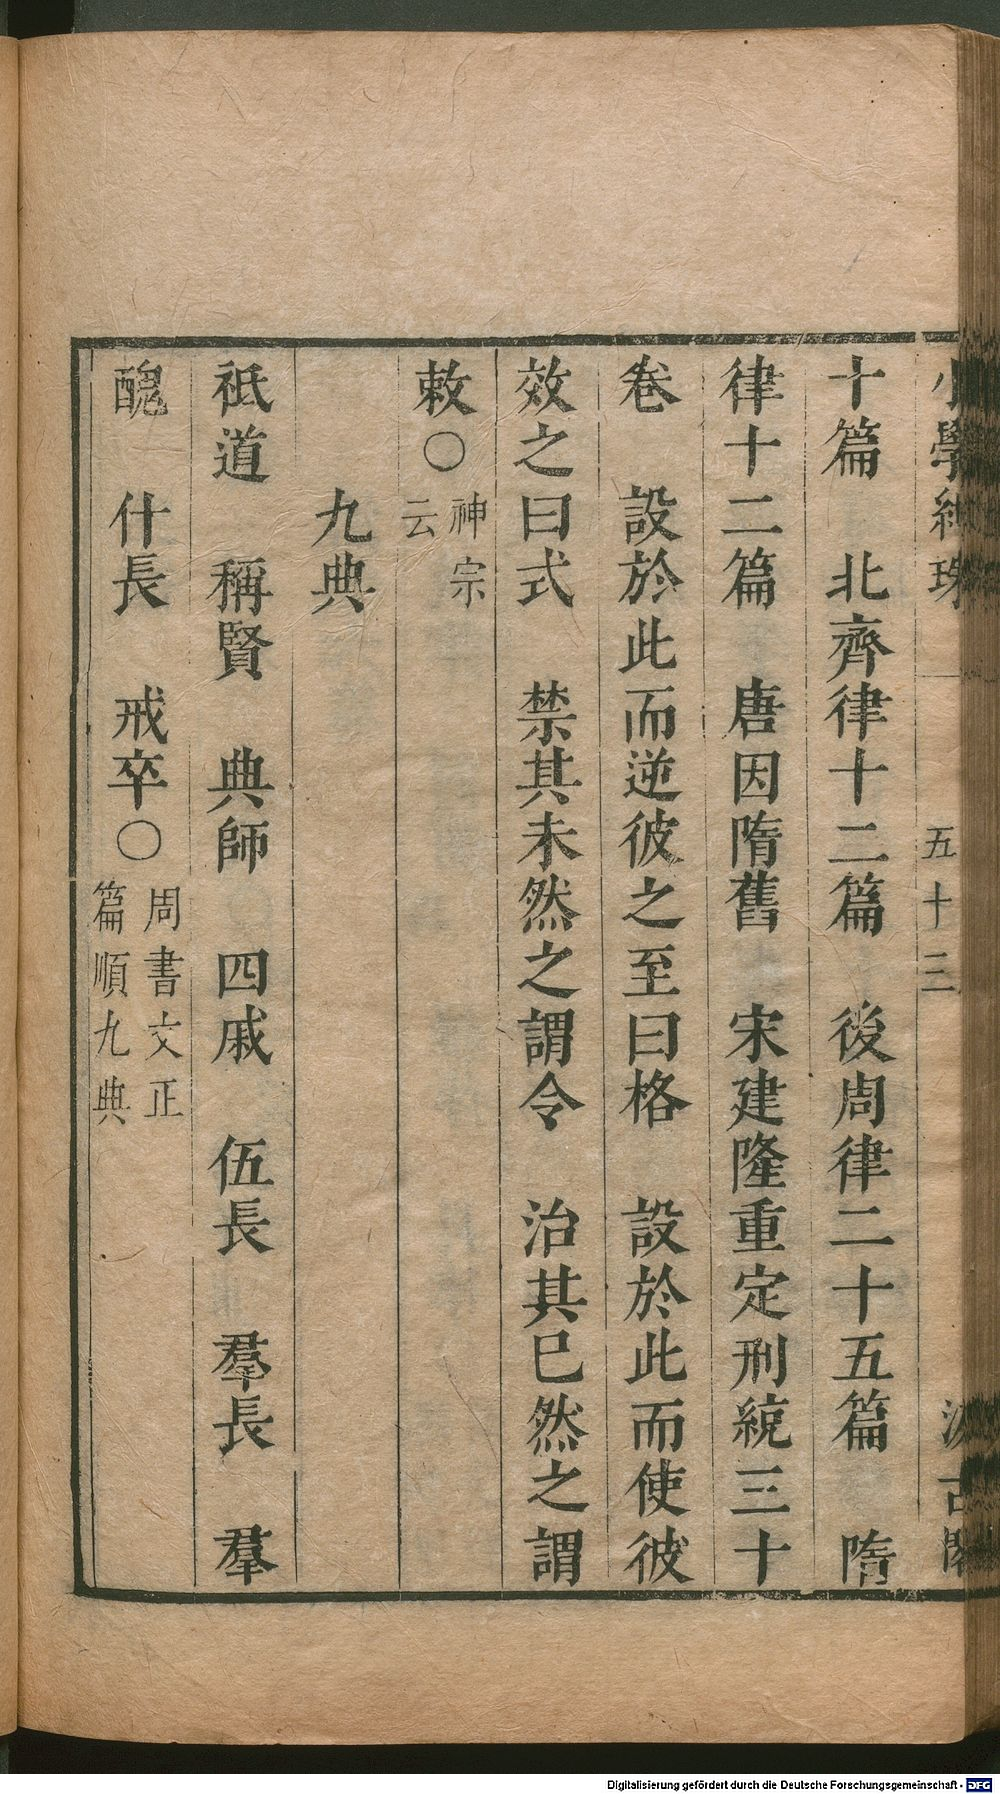 小學紺珠 五十三 汲古閣
十篇 北齊律十二篇 後周律二十五篇 隋
律十二篇 唐因隋舊 宋建隆重定刑統三十
卷 設於此而逆彼之至曰格 設於此而使彼
效之曰式 禁其未然之謂令 治其巳然之謂
敕○神宗
云
九典
祇道 稱賢 典師 四戚 伍長 羣長 羣
醜 什長 戒卒○周書文正
篇順九典
Digitalisierung gefördert durch die Deutsche Forschungsgemeinschaft - DFG